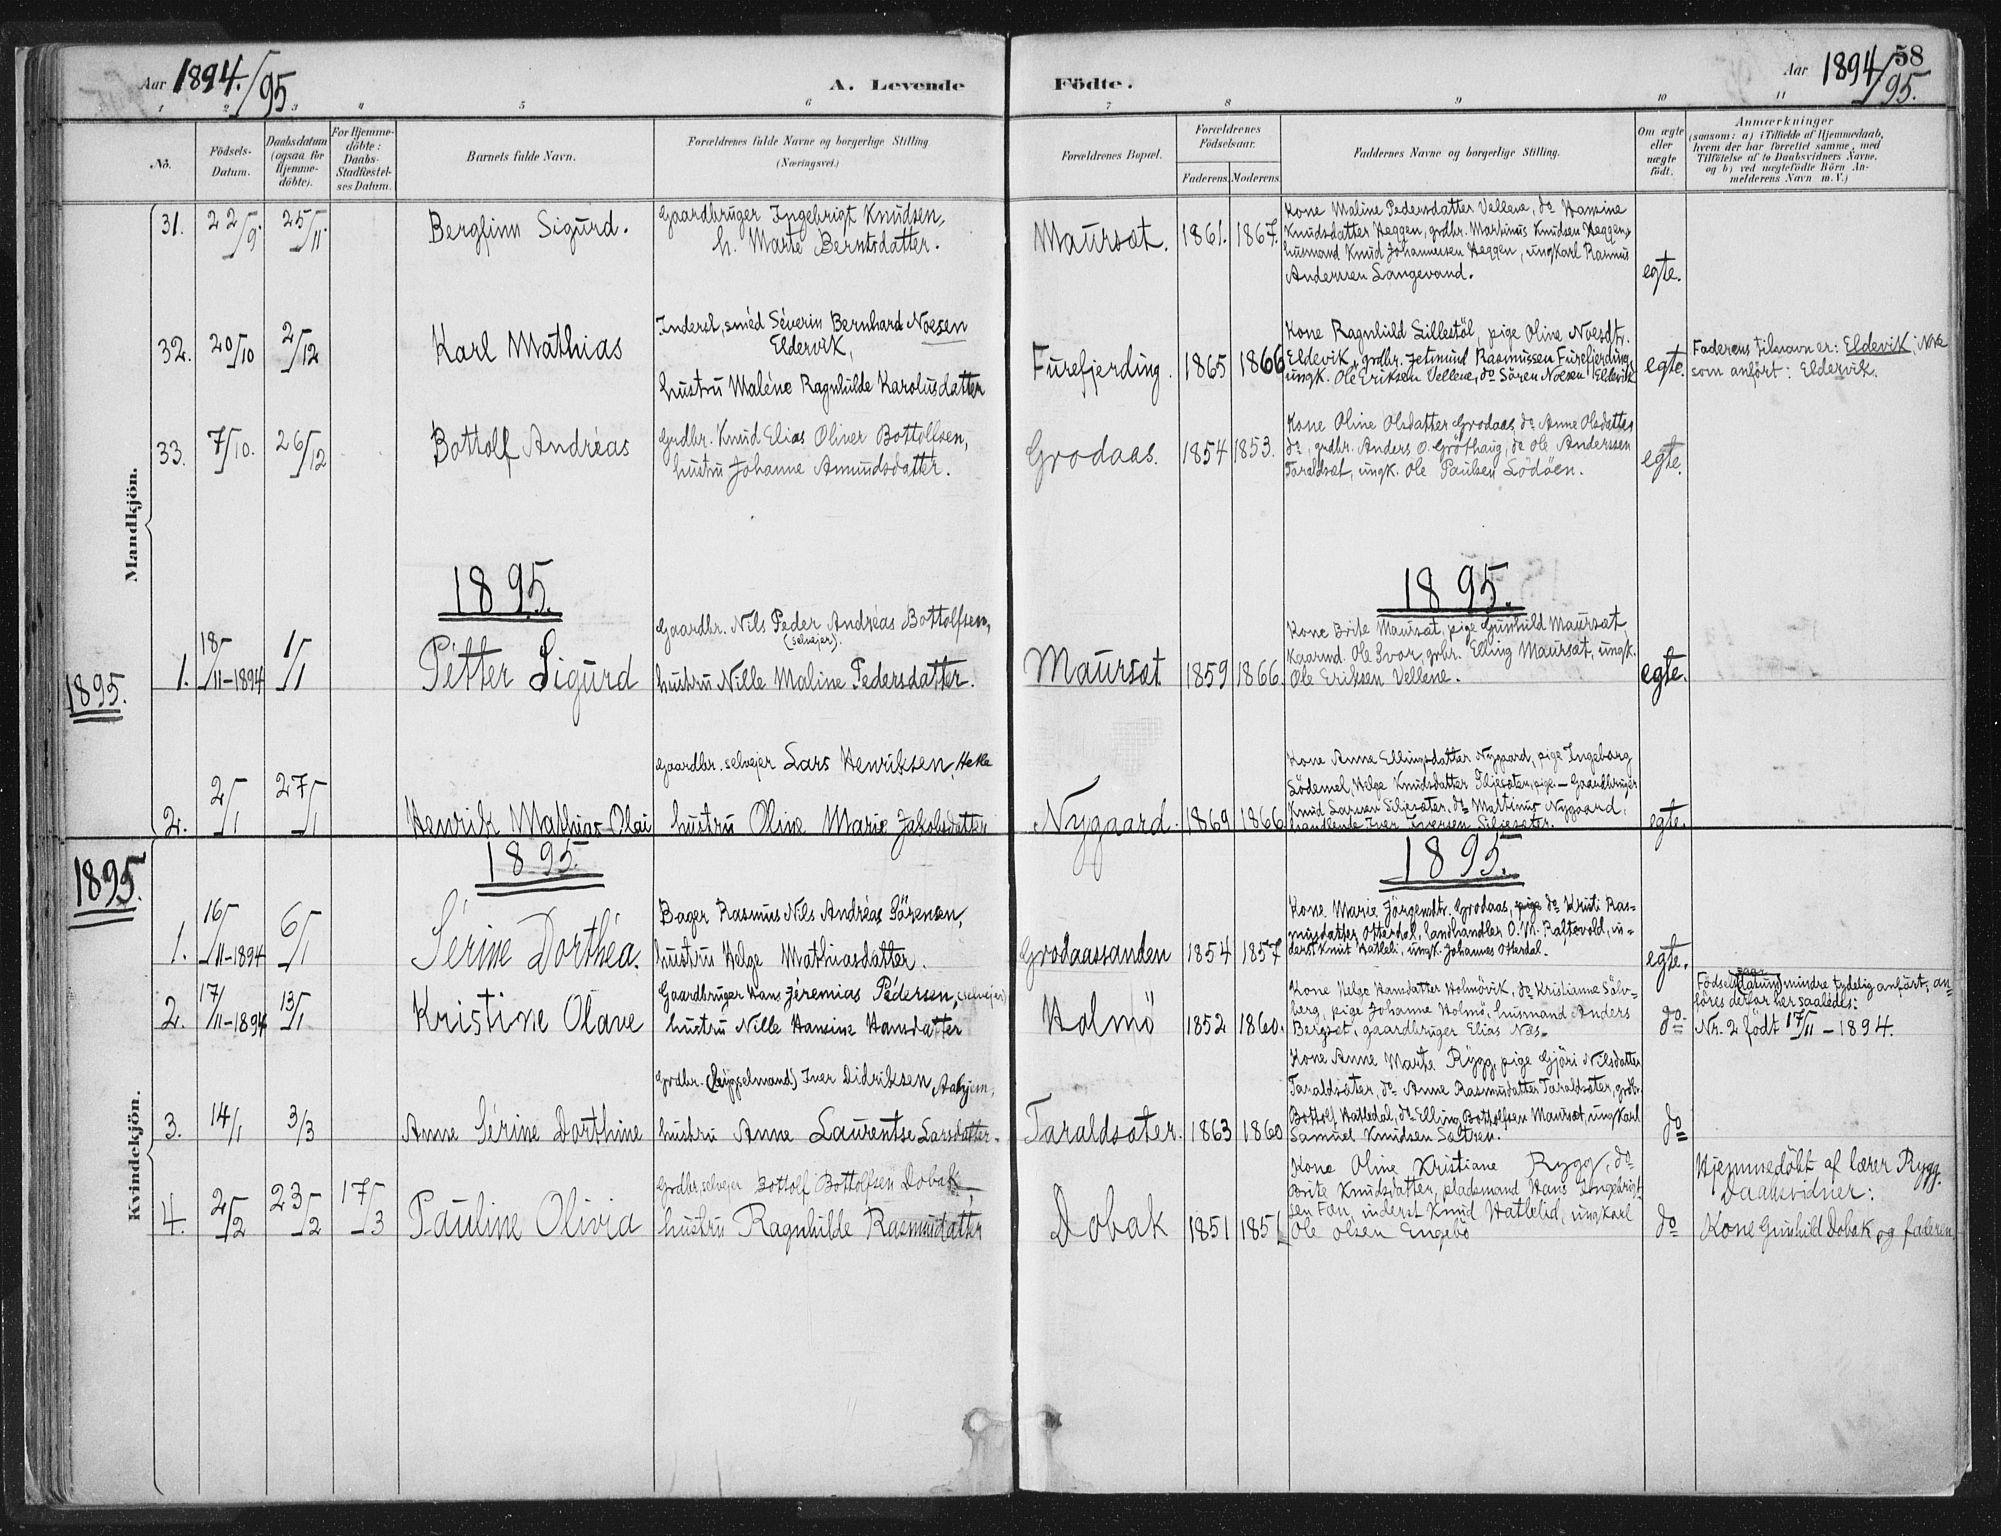 Aar 1894/95
A. Levende
1 2 3 4 5 6
No.
Födsels-
Datum.
Daabsdatum
(ogsaa for
Hjemme-
döbte).
For Hjemme-
döbte:
Daabs-
Stadfæstel-
ses Datum.
Barnets fulde Navn.
Forældrenes fulde Navne og borgerlige Stilling
(Næringsvei.)
Mandkjön.
31. 22/9. 25/11. Bergfinn Sigurd.
Gaardbruger Ingebrigt Knudsen,
h. Marte Berntsdatter.
32. 20/10 2/12 Karl Mathias
Inderst, smed Séverin Bernhard Noesen
Eldervik,
hustru Maléne Ragnhilde Karolusdatter
33. 7/10. 26/12 Bottolf Andréas
Grdbr. Knud Elias Oliver Bottolfsen,
hustru Johanne Amundsdatter.
1895.
1895.
1. 18/11-1894 1/1 Pétter Sigurd
Gaardbr. Nils Peder Andréas Bottolfsen,
(selvejer).
hustru Nille Maline Pedersdatter.
2. 2/1 27/1 Henrik Mathias Olai
Gaardbr. selvejer Lars Henriksen,
hustru Oline Marie Jakobsdatter
1895.
1895.
Kvindekjön.
1. 16/11-1894 6/1 Sérine Dorthéa.
Bager Rasmus Nils Andréas Sörensen,
hustru Helge Mathiasdatter.
2. 17/11-1894 13/1 Kristine Olave
Gaardbruger Hans Jéremias Pédersen, (selvejer)
hustru Nille Hansine Hansdatter
3. 14/1 3/3 Anne Sérine Dorthine
Grdbr. (bygselmand) Iver Didriksen Aahjem,
hustru Anne Laurentse Larsdatter.
4. 2/2 23/2 17/3 Pauline Olivia
Grdbr. selvejer Bottolf Bottolfsen Dobak,
hustru Ragnhilde Rasmusdatter
Födte.
Aar 1894/95.
58
7 8 9 10 11
Forældrenes Bopæl.
Forældrenes
Födselsaar.
Faderens. Moderens.
Faddernes Navne og borgerlige Stilling.
Om ægte
eller
uægte
födt.
Anmærkninger
(saasom: a) i Tilfælde af Hjemmedaab,
hvem der har forrettet samme, med
Tilföielse af to Daabsvidners Navne,
og b) ved uægtefödte Börn An-
melderens Navn m. V.)
Maursæt. 1861. 1867.
Kone Maline Pedersdatter Vellene, do Hansine
Knudsdatter Heggen, grdbr. Martinus Knudsen Heggen,
husmand Knud Johannessen Heggen, ungkarl Rasmus
Anderssen Langevand.
egte.
Furefjerding. 1865 1866
Kone Ragnhild Lillestöl, pige Oline Noesdtr.
Eldevik, grdbr. Jetmund Rasmussen Furefjerding,
ungk. Ole Eriksen Vellene, do Sören Noesen Eldevik
egte.
Faderens tilnavn er: Eldevik,
som anfört: Eldervik.
Grodaas. 1854 1853.
Kone Oline Olsdatter Grodaas, do Anne Olsdatter
do, grdbr. Anders O. Gröthaug, do Ole Anderssen
Taraldsæt, ungk. Ole Paulsen Lödöen.
egte.
1895.
Maursæt 1859 1866.
Kone Brite Maursæt, pige Gunhild Maursæt,
Kaarmd. Ole Svor, grbr. Elling Maursæt, ungk.
Ole Eriksen Vellene.
egte.
Nygaard. 1869 1866
Kone Anne Ellingsdatter Nygaard, pige Ingeborg
Lödemel, Helge Knudsdatter Siljesæter, pige - Gaardbruger
Knud Larsen Siljesæter, do Martinus Nygaard,
handlende Iver Iversen Siljesæter.
egte.
1895.
Grodaassanden 1854 1857
Kone Marie Jörgensdtr. Grodaas, pige do Kristi Ras-
musdatter Otterdal, landhandler O. M. Raftevold, in-
derst Knut Hatleli, ungk. Johannes Otterdal.
egte.
Holmö 1852 1860.
Kone Helge Hansdatter Holmövik, do Kristianne Sölv-
berg, pige Johanne Holmö, husmand Anders
Bergset, gaardbruger Elias Næs.
do
Födsels(datum) mindre tydelig anfört, an-
föres derfor her saaledes:
Nr. 2 födt 17/11 - 1894.
Taraldsæter. 1863 1860
Kone Anne Marte Rygg, pige Gjöri Nilsdatter
Taraldsæter, do Anne Rasmusdatter Taraldsæter, grdbr.
Bottolf Hatledal, do Elling Bottolfsen Maursæt, ungkarl
Samuel Knudsen Sætren.
do
Dobak 1851 1851
Kone Oline Kristiane Rygg, do
Brite Knudsdatter, pladsmand Hans Ingebrigt-
sen Fan, inderst Knud Hatlelid, ungkarl
Ole Olsen Engebö
do
Hjemmedöbt af lærer Rygg.
Daabsvidner:
Kone Gunhild Dobak og faderen